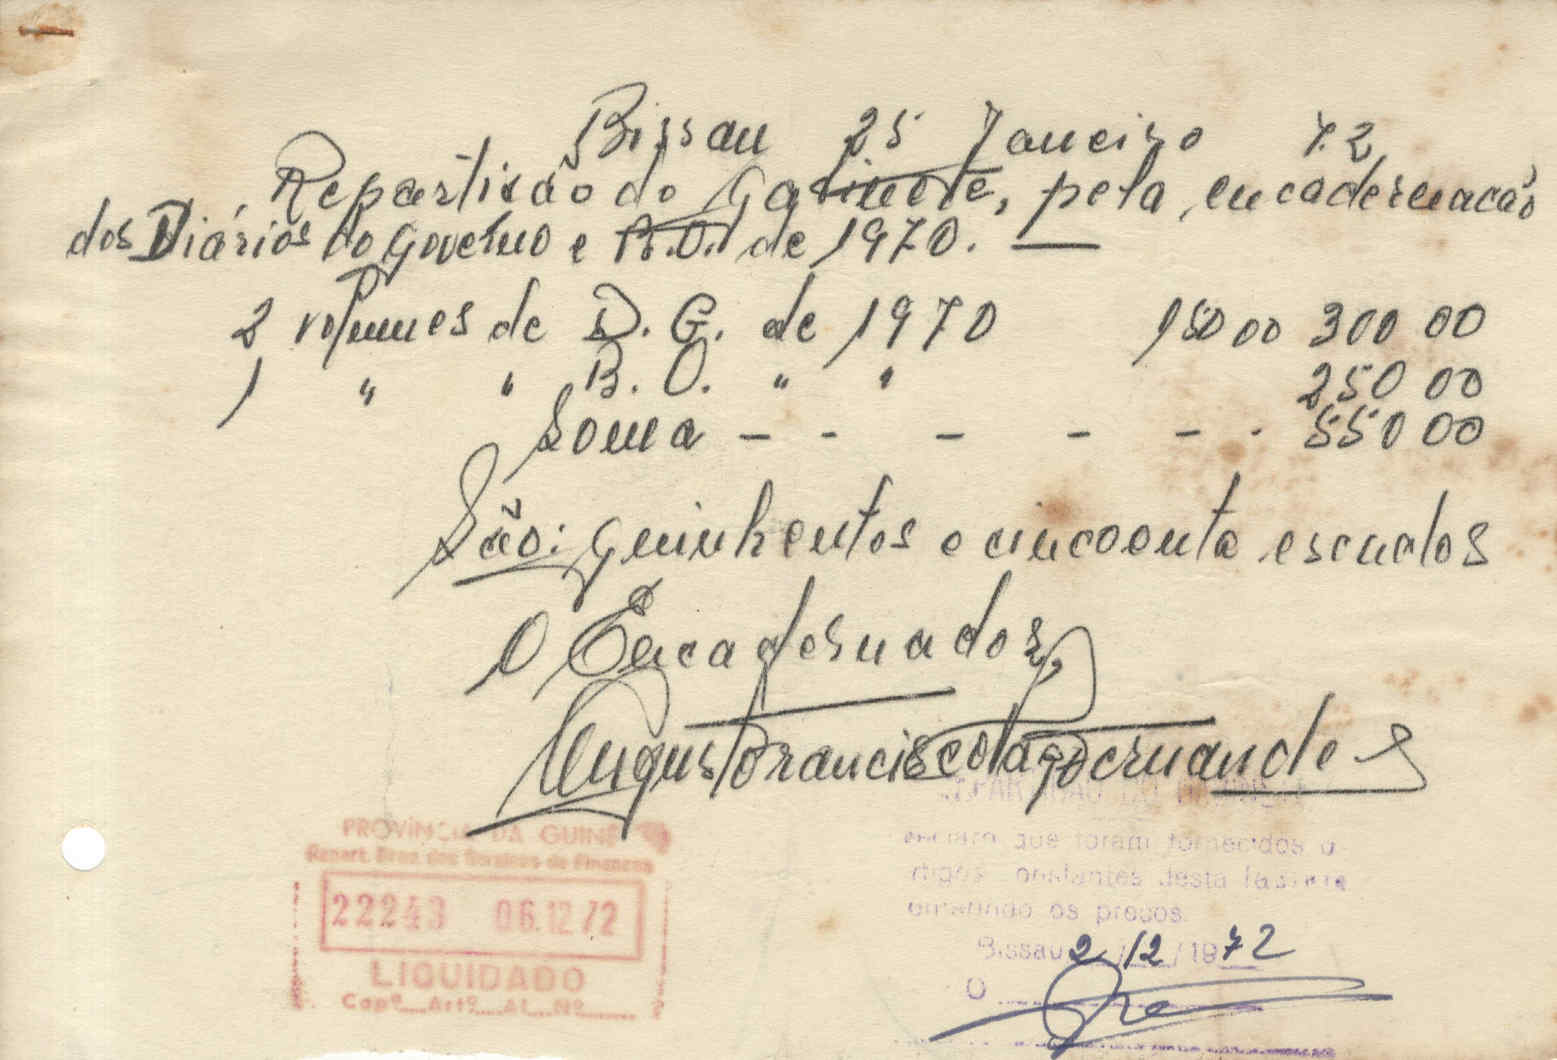 Bissau 25 Janeiro 72
Repartição do Gabinete, pela encadernação
dos Diários do Governo e B.O. de 1970. —
2 volumes de D. G. de 1970 150 00 300 00
1 " " B. O. " " 250 00
Soma - - - - - - 550 00
São: quinhentos e cincoenta escudos
O Encadernador,
Augusto Francisco Fernandes
PROVÍNCIA DA GUINÉ
Repart. Prov. dos Serviços de Finanças
22243 06.12.72
LIQUIDADO
Capº___Artº___Al___Nº___
que foram fornecidos
constantes desta factura
os preços.
Bissau 2/12/1972
O